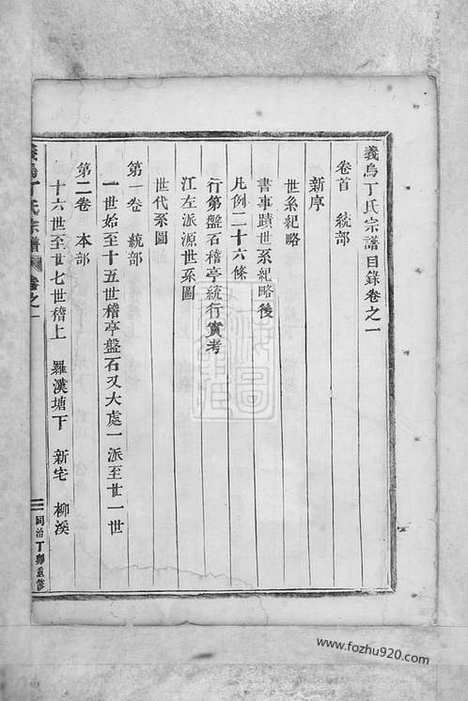 義烏丁氏宗譜目錄卷之一
卷首　統部
新序
世系紀略
書事蹟世系紀略後
凡例二十六條
行第盤石稽亭統行實考
江左派源世系圖
世代系圖
第一卷　統部
一世始至十五世稽亭盤石又大處一派至丗一世
第二卷　本部
十六世至丗七世稽上　羅漢塘下　新宅　柳溪
義烏丁氏宗譜　卷之一
同治丁卯重修
www.fozhu920.com